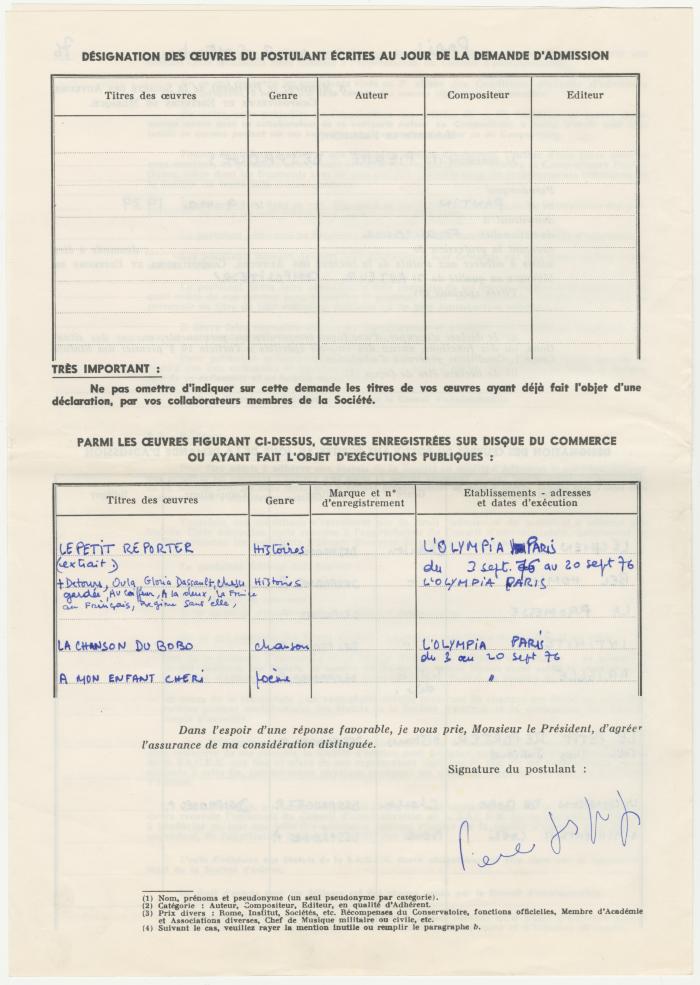 DÉSIGNATION DES ŒUVRES DU POSTULANT ÉCRITES AU JOUR DE LA DEMANDE D'ADMISSION
Titres des œuvres Genre Auteur Compositeur Editeur
TRÈS IMPORTANT :
Ne pas omettre d'indiquer sur cette demande les titres de vos œuvres ayant déjà fait l'objet d'une
déclaration, par vos collaborateurs membres de la Société.
PARMI LES ŒUVRES FIGURANT CI-DESSUS, ŒUVRES ENREGISTRÉES SUR DISQUE DU COMMERCE
OU AYANT FAIT L'OBJET D'EXÉCUTIONS PUBLIQUES :
Titres des œuvres Genre Marque et n° d'enregistrement Etablissements - adresses et dates d'exécution
LE PETIT REPORTER Histoires L'OLYMPIA PARIS
(extrait) du 3 sept. 76 au 20 sept 76
+ Detours, Oula, Gloria Dassault, Chasse Histoires L'OLYMPIA PARIS
gardée, Au coiffeur, A la deux, La France
au Français, Regime sans elle,
LA CHANSON DU BOBO chanson L'OLYMPIA PARIS
du 3 au 20 sept 76
A MON ENFANT CHERI poème "
Dans l'espoir d'une réponse favorable, je vous prie, Monsieur le Président, d'agréer
l'assurance de ma considération distinguée.
Signature du postulant :
Pierre
(1) Nom, prénoms et pseudonyme (un seul pseudonyme par catégorie).
(2) Catégorie : Auteur, Compositeur, Editeur, en qualité d'Adhérent.
(3) Prix divers : Rome, Institut, Sociétés, etc. Récompenses du Conservatoire, fonctions officielles, Membre d'Académie
et Associations diverses, Chef de Musique militaire ou civile, etc.
(4) Suivant le cas, veuillez rayer la mention inutile ou remplir le paragraphe b.